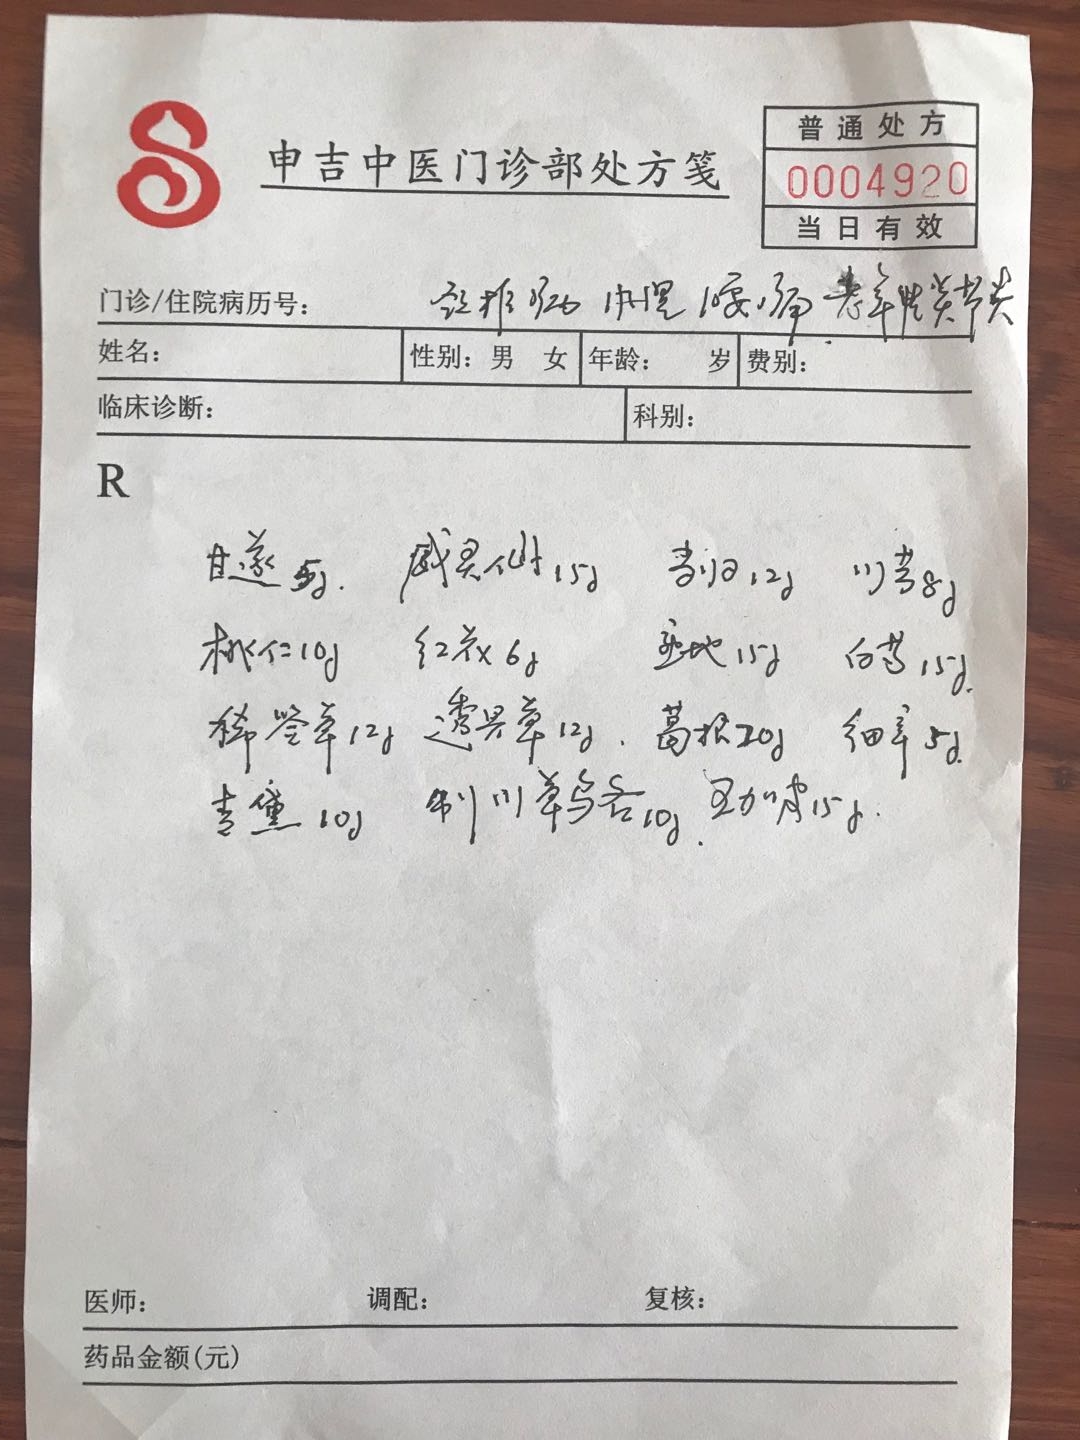 申吉中医门诊部处方笺
普通处方
0004920
当日有效
门诊/住院病历号: 颈椎病 肩周 腰痛 老年性关节炎
姓名: 性别: 男 女 年龄: 岁 费别:
临床诊断: 科别:
R
甘遂 5g. 威灵仙 15g 当归 12g 川芎 8g
桃仁 10g 红花 6g 生地 15g 白芍 15g.
稀莶草 12g 透骨草 12g. 葛根 20g 细辛 5g.
制川草乌各 10g. 五加皮 15g.
医师: 调配: 复核:
药品金额(元)